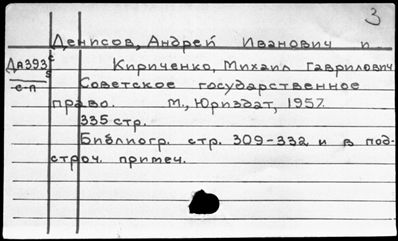 3
Денисов, Андрей Иванович и
Да393 с Кириченко, Михаил Гаврилович
с-п 5 Советское государственное
право. М., Юриздат, 1957.
335 стр.
Библиогр. стр. 309-332 и в под-
строч. примеч.